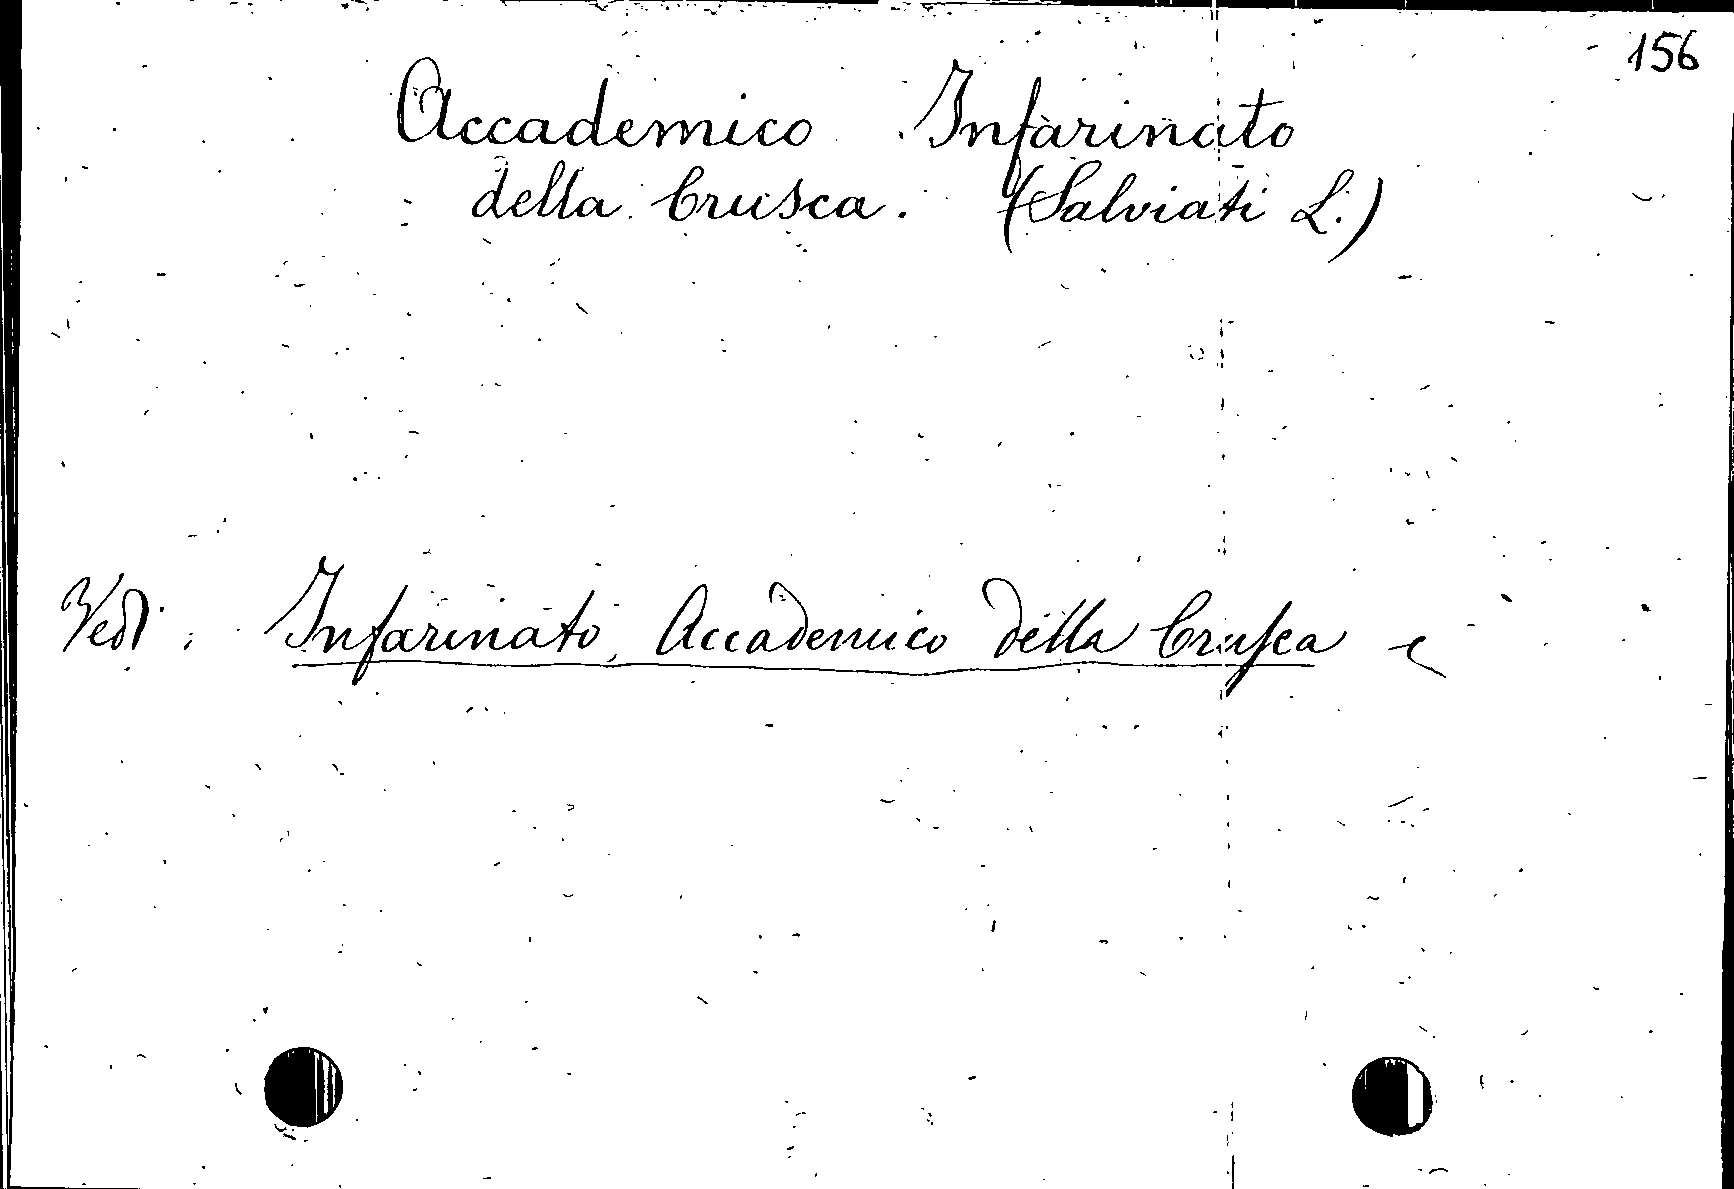 156
Accademico Infarinato
della Crusca. (Salviati L.)
Vedi: Infarinato, Accademico della Crusca